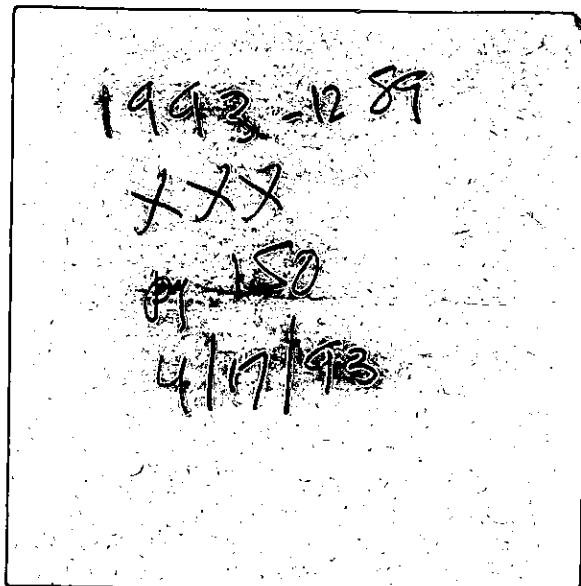 1993-1289
XXX
pg. 150
4/17/93